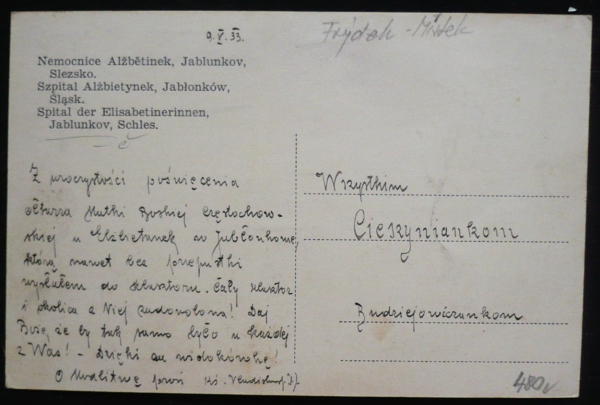 9. V. 33.
Frýdek - Místek
Nemocnice Alžbětinek, Jablunkov,
Slezsko.
Szpital Alżbietynek, Jabłonków,
Śląsk.
Spital der Elisabetinerinnen,
Jablunkov, Schles.
Z uroczystości poświęcenia
ołtarza Matki Boskiej Częstochow-
skiej u Elżbietanek w Jabłonkowie,
którą nawet bez przepustki
wysłałem do klasztoru. Cały klasztor
i okolica z Niej zadowolona! Daj
Boże że by tak samo było u każdej
z Was! - Dzięki za widokówkę!
O Modlitwę prosi ks.
Wszystkim
Cieszyniankom
480,-